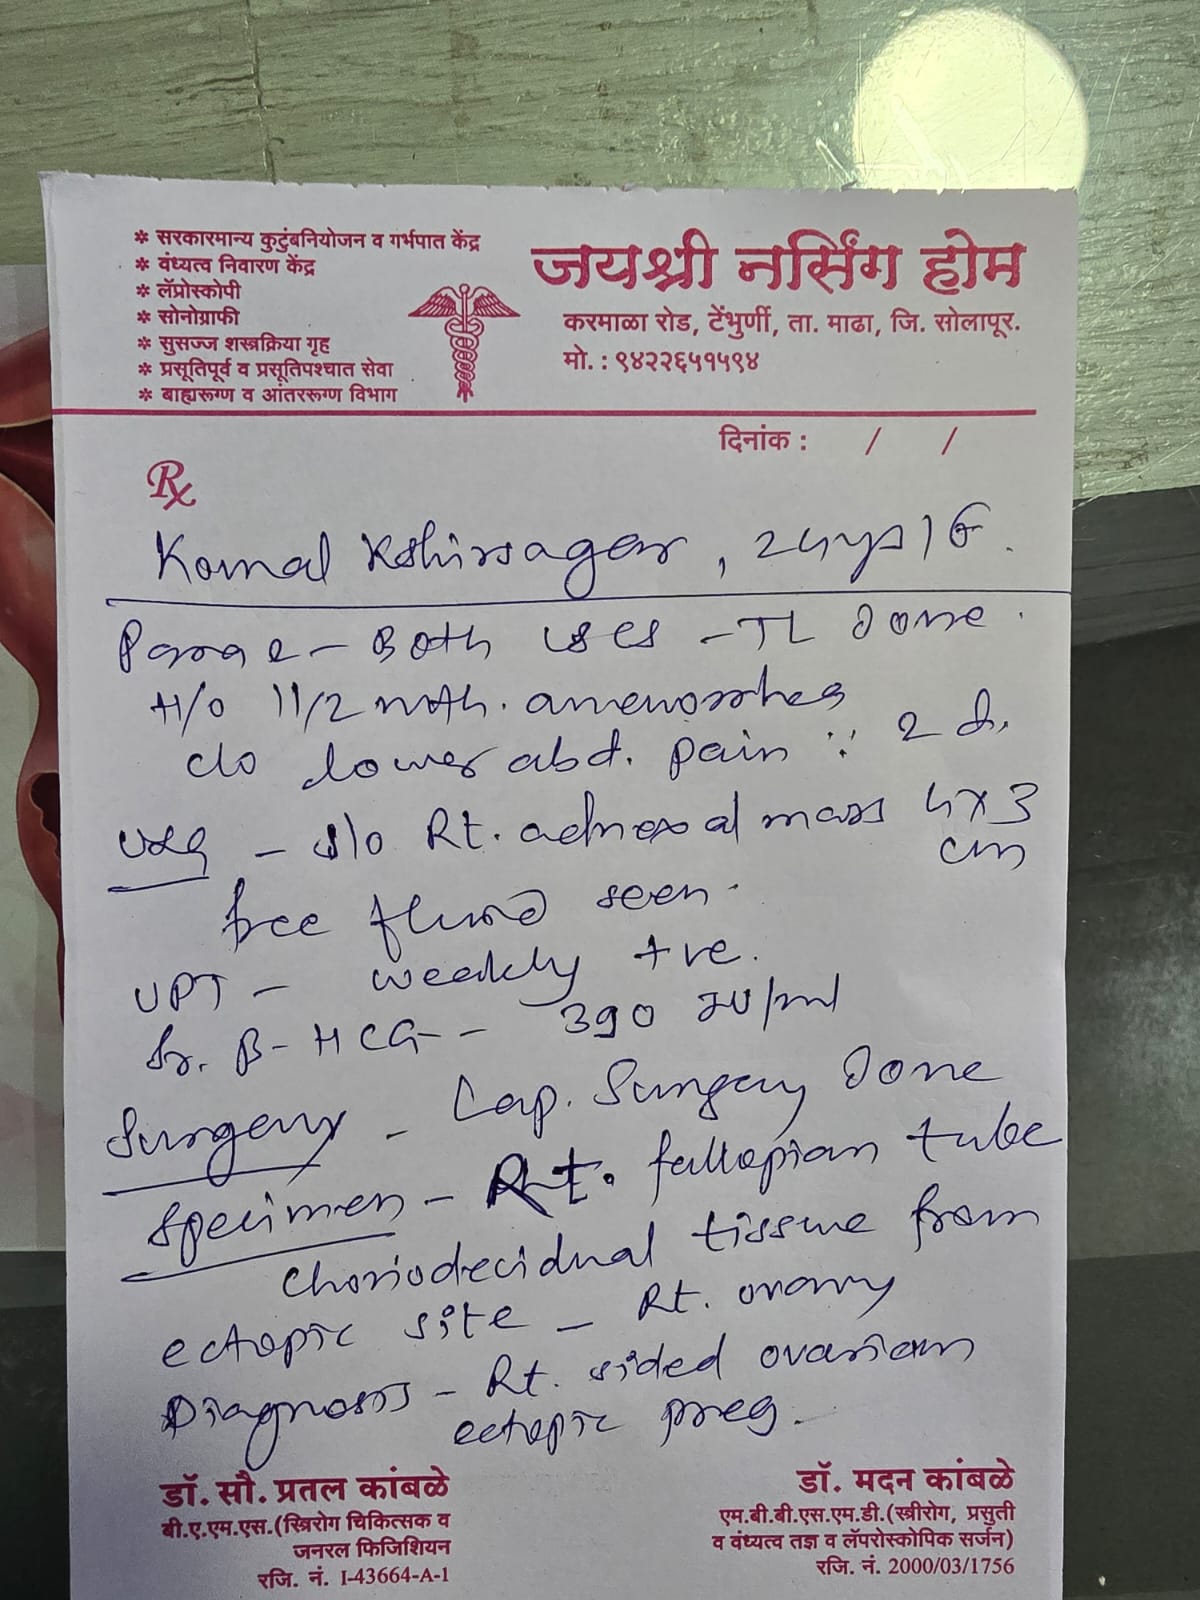 * सरकारमान्य कुटुंबनियोजन व गर्भपात केंद्र
* वंध्यत्व निवारण केंद्र
* लॅप्रोस्कोपी
* सोनोग्राफी
* सुसज्ज शस्त्रक्रिया गृह
* प्रसूतिपूर्व व प्रसूतिपश्चात सेवा
* बाह्यरूग्ण व आंतररूग्ण विभाग
जयश्री नर्सिंग होम
करमाळा रोड, टेंभुर्णी, ता. माढा, जि. सोलापूर.
मो. : ९४२२६५१५९४
दिनांक : / /
Rx
Komal Kshirsagar, 24yrs / F.
Para 2 - Both LSCS - TL Done.
H/o 1 1/2 mth. amenorrhea
c/o lower abd. pain ∵ 2 d.
USG - s/o Rt. adnexal mass 4x3
cm
free fluid seen.
UPT - weekly +ve.
Sr. β-HCG - 390 IU/ml
Surgery - Lap. Surgery Done
Specimen - Rt. fallopian tube
Choriodecidual tissue from
ectopic site - Rt. ovary
Diagnosis - Rt. sided ovarian
ectopic preg.
डॉ. सौ. प्रतल कांबळे
बी.ए.एम.एस.(स्त्रिरोग चिकित्सक व
जनरल फिजिशियन
रजि. नं. I-43664-A-1
डॉ. मदन कांबळे
एम.बी.बी.एस.एम.डी.(स्त्रीरोग, प्रसुती
व वंध्यत्व तज्ञ व लॅपरोस्कोपिक सर्जन)
रजि. नं. 2000/03/1756